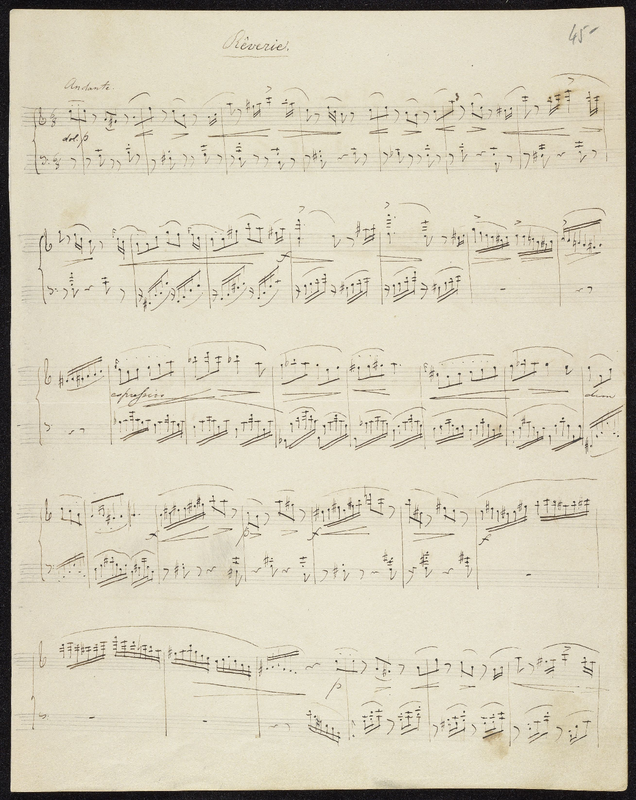 Rêverie.
45
Andante.
dol. p
f
espressivo
dim
f p f
f
p